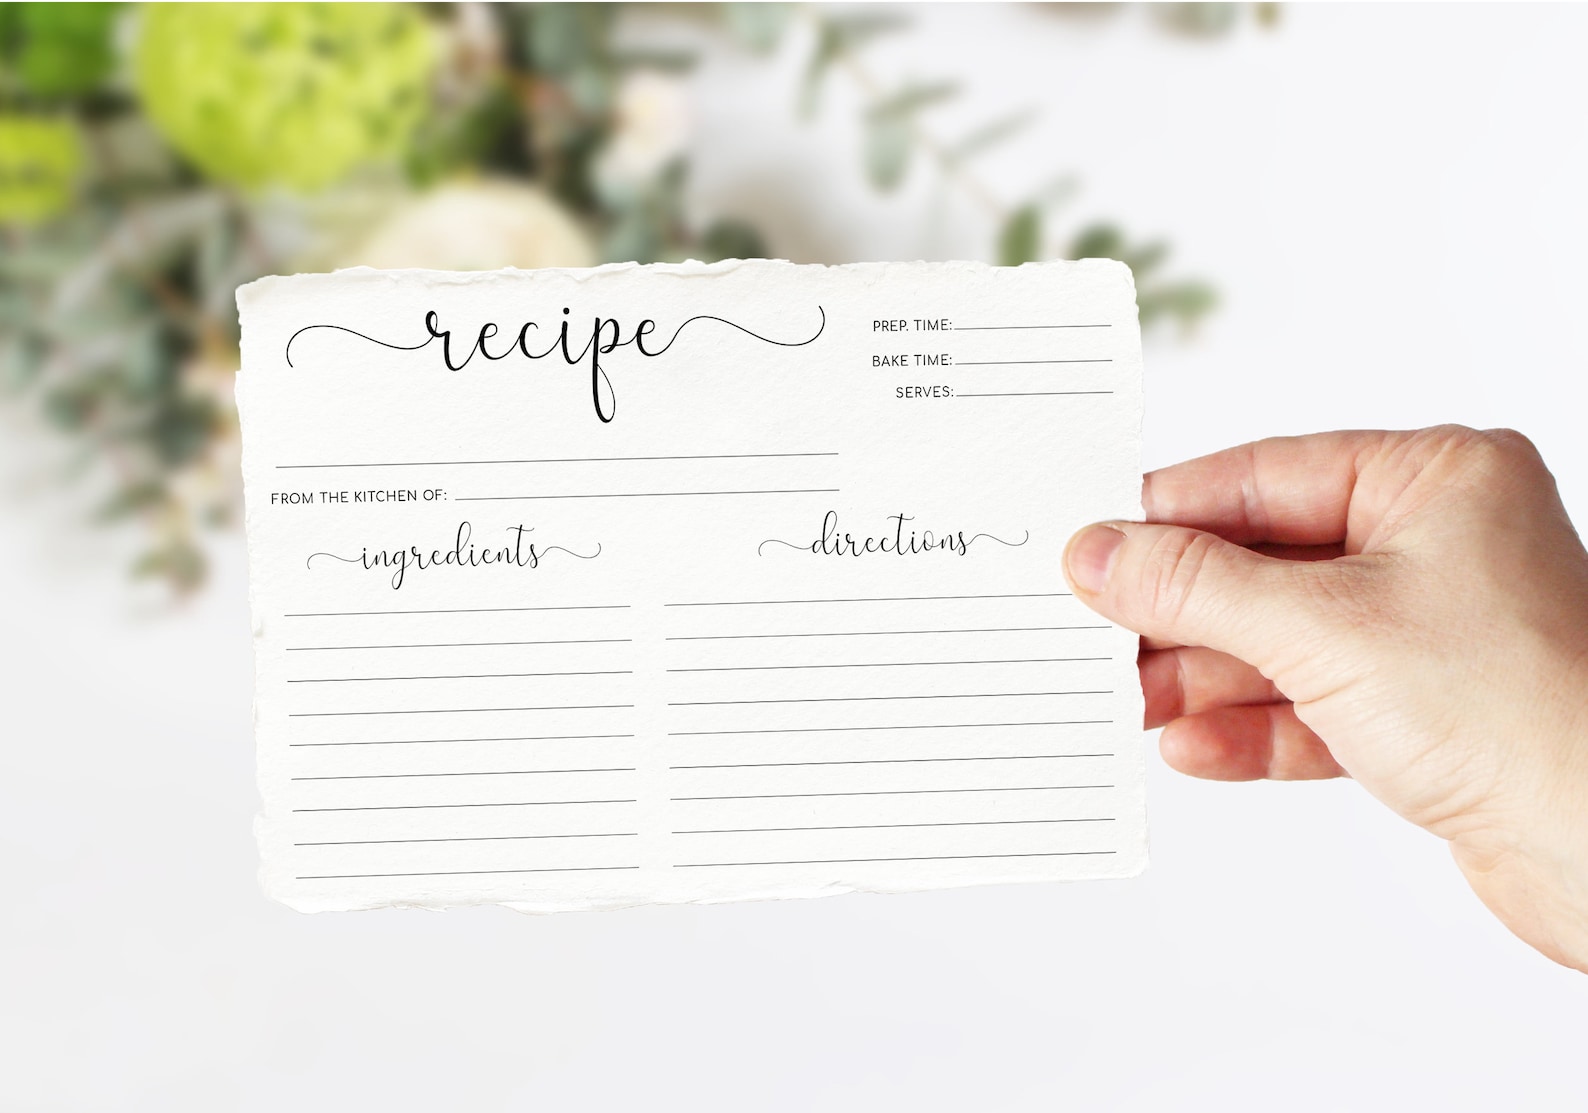 recipe
PREP. TIME:
BAKE TIME:
SERVES:
FROM THE KITCHEN OF:
ingredients
directions